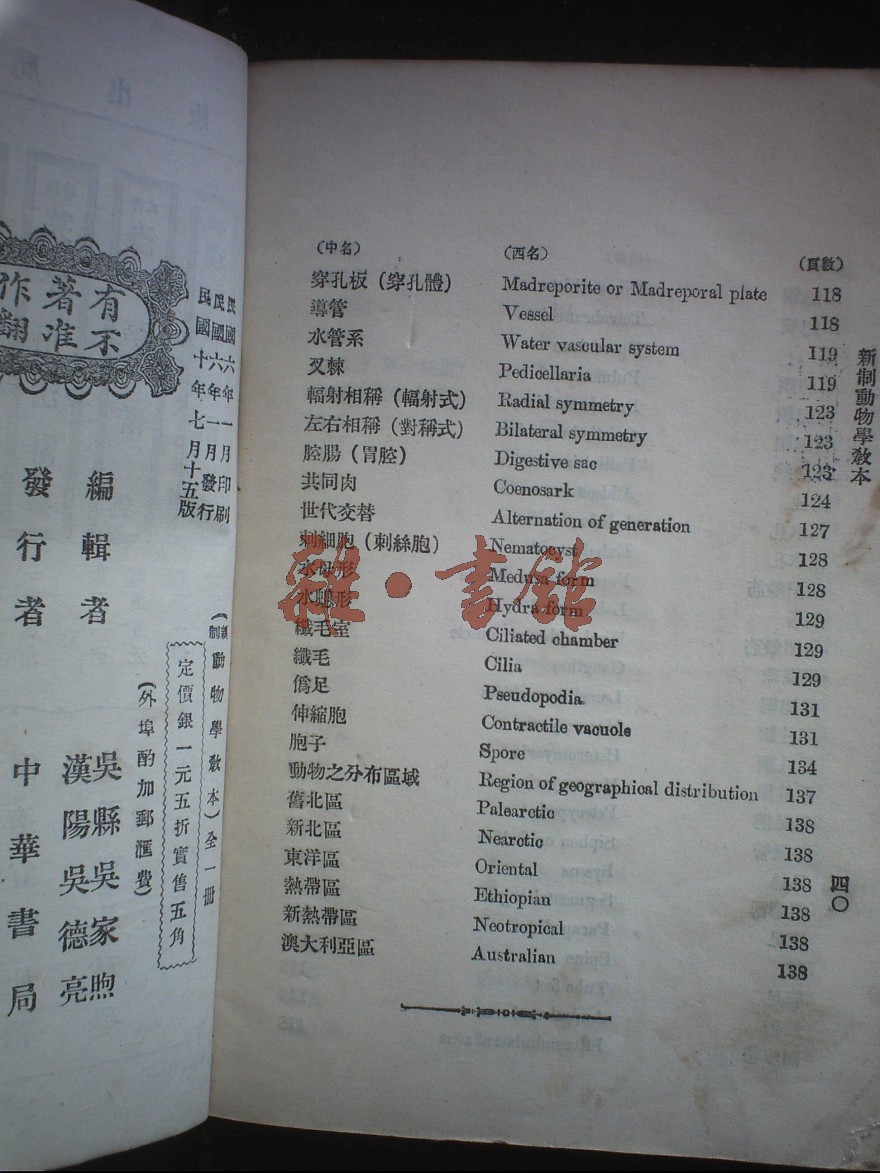 (中名) (西名) (頁數)
穿孔板（穿孔體） Madreporite or Madreporal plate 118
導管 Vessel 118
水管系 Water vascular system 119
叉棘 Pedicellaria 119
輻射相稱（輻射式） Radial symmetry 123
左右相稱（對稱式） Bilateral symmetry 123
腔腸（胃腔） Digestive sac 123
共同肉 Coenosark 124
世代交替 Alternation of generation 127
刺細胞（刺絲胞） Nematocyst 128
水母形 Medusa form 128
水螅形 Hydra form 129
纖毛室 Ciliated chamber 129
纖毛 Cilia 129
僞足 Pseudopodia 131
伸縮胞 Contractile vacuole 131
胞子 Spore 134
動物之分布區域 Region of geographical distribution 137
舊北區 Palearctic 138
新北區 Nearctic 138
東洋區 Oriental 138
熱帶區 Ethiopian 138
新熱帶區 Neotropical 138
澳大利亞區 Australian 138
新制動物學敎本
四〇
雜·書館
有不
著准
作翻
民國六年一月印刷
民國六年一月發行
民國十年七月十五版
(新制動物學敎本)全一冊
定價銀一元五折實售五角
(外埠酌加郵匯費)
編輯者 吳縣吳家煦
漢陽吳德亮
發行者 中華書局